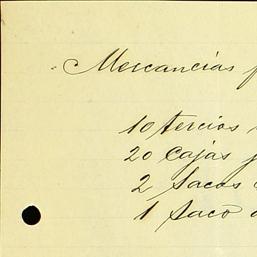 Mercancías
10 tercios
20 Cajas
2 Sacos
1 Saco